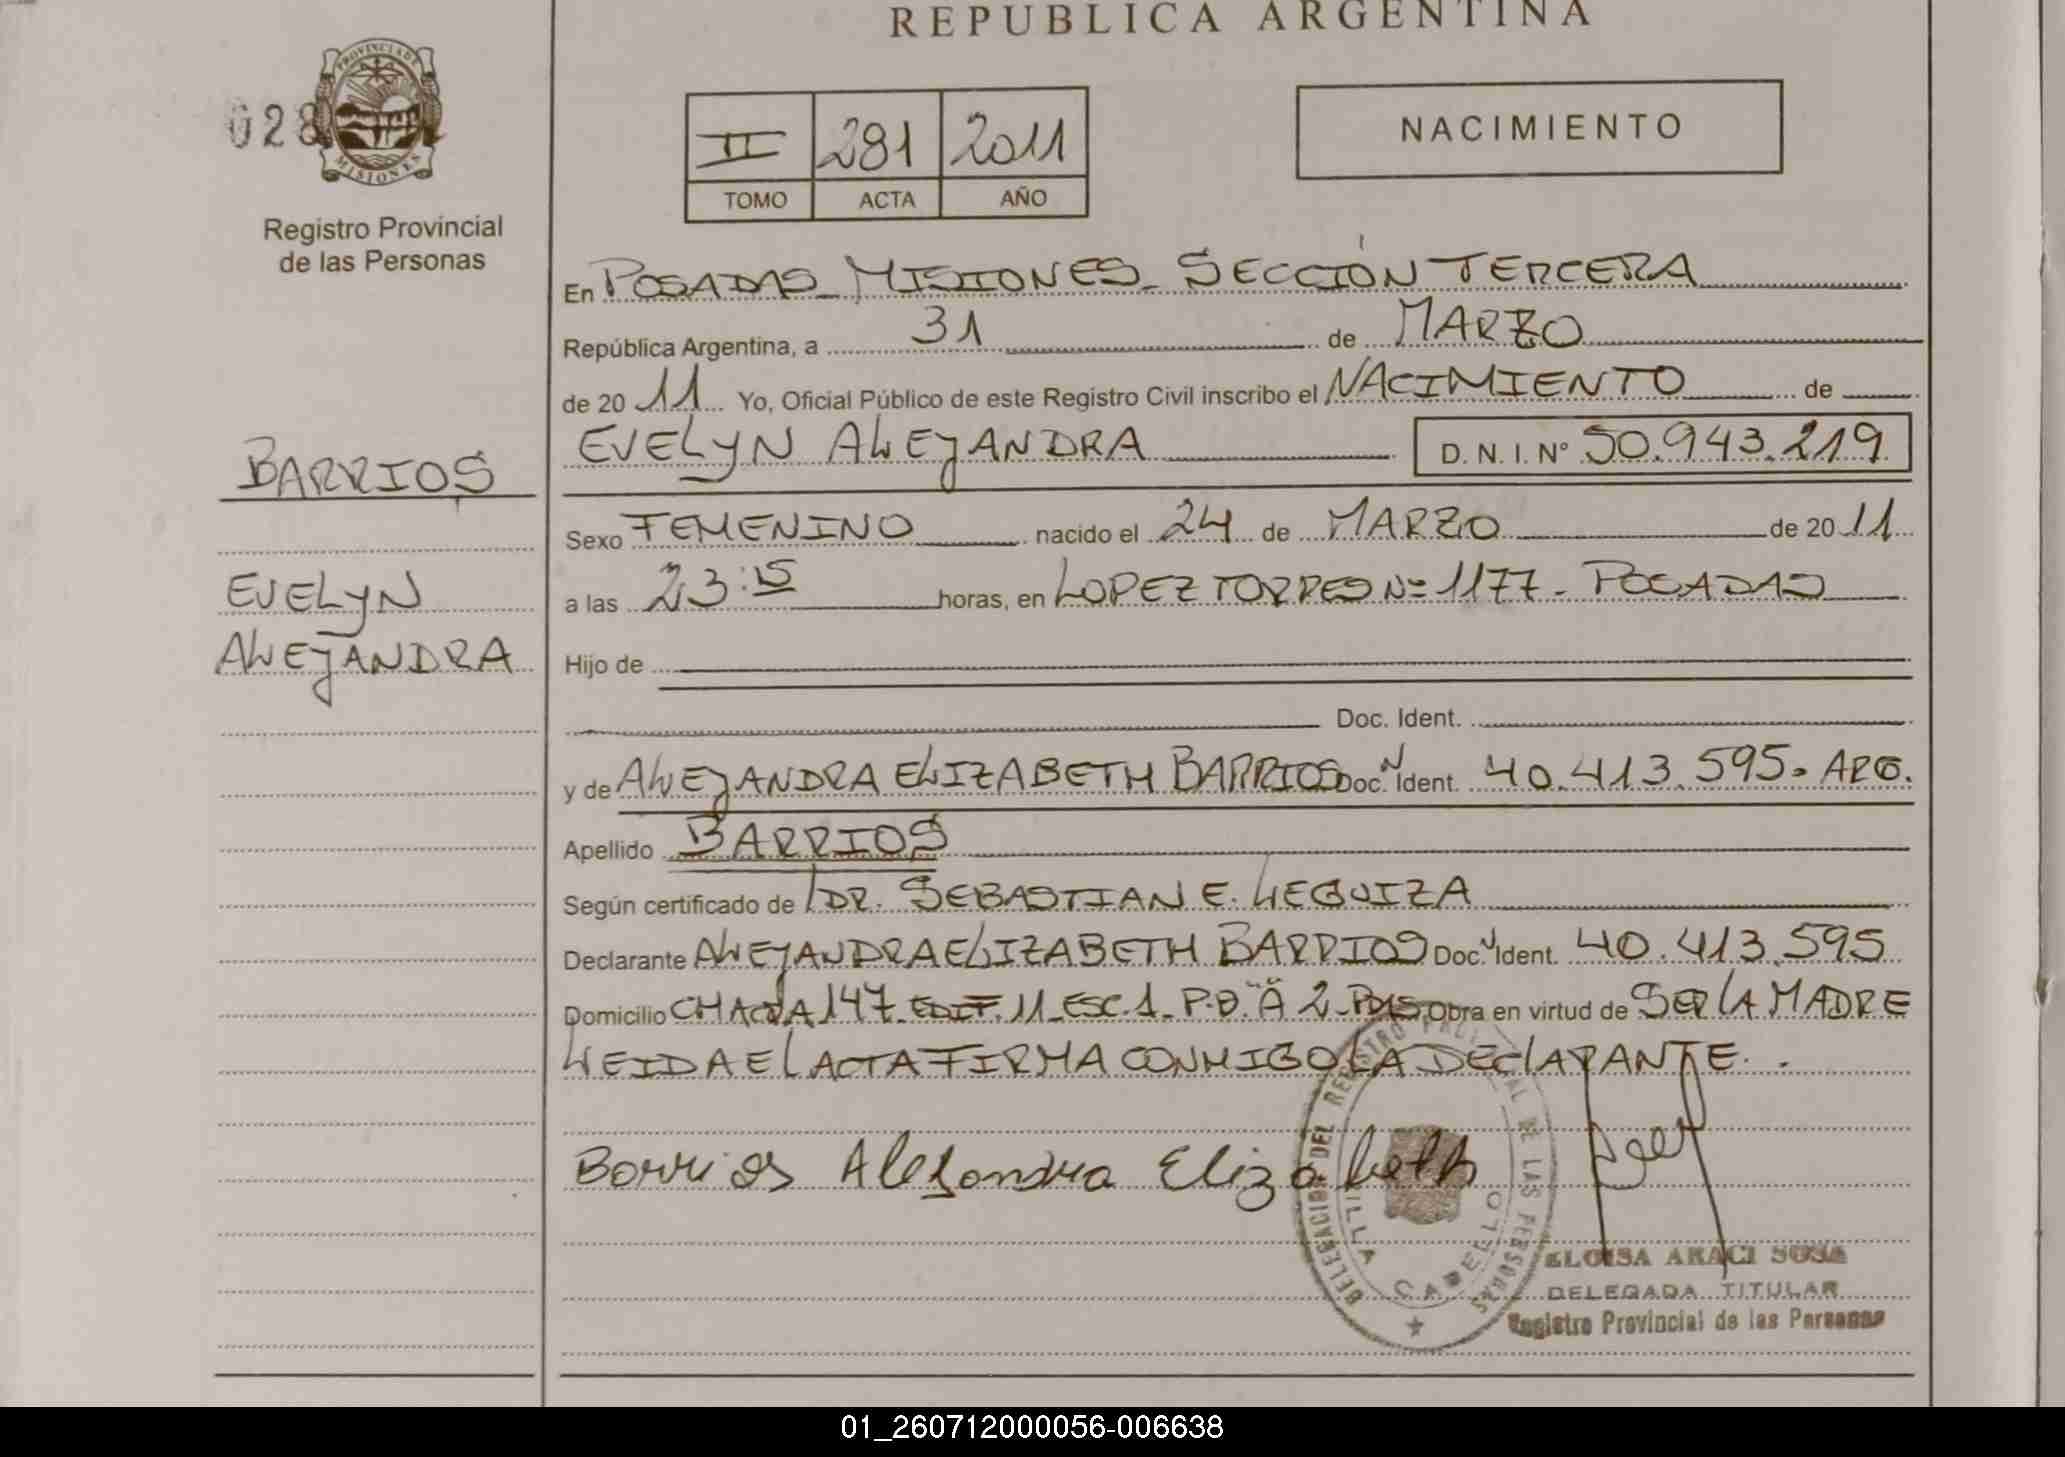 REPUBLICA ARGENTINA
028
PROVINCIA DE
MISIONES
Registro Provincial
de las Personas
II 281 2011
TOMO ACTA AÑO
NACIMIENTO
En POSADAS MISIONES SECCIÓN TERCERA
República Argentina, a 31 de MARZO
de 20 11 Yo, Oficial Público de este Registro Civil inscribo el NACIMIENTO de
EVELYN ALEJANDRA D. N. I. Nº 50.943.219
BARRIOS
EVELYN
ALEJANDRA
Sexo FEMENINO nacido el 24 de MARZO de 20 11
a las 23:15 horas, en LOPEZ TORRES Nº 1177 - POSADAS
Hijo de
Doc. Ident.
y de ALEJANDRA ELIZABETH BARRIOS Doc. Ident. 40.413.595. ARG.
Apellido BARRIOS
Según certificado de DR. SEBASTIAN E. LEGUIZA
Declarante ALEJANDRA ELIZABETH BARRIOS Doc. Ident. 40.413.595
Domicilio CHACRA 147 EDIF. 11 ESC. 1 P.B. "A" 2 Obra en virtud de SER LA MADRE
LEIDA EL ACTA FIRMA CONMIGO LA DECLARANTE.
Barrios Alejandra Elizabeth
DELEGACION DEL REGISTRO PROVINCIAL DE LAS PERSONAS
VILLA CABELLO
ELOISA ARACI SOSA
DELEGADA TITULAR
Registro Provincial de las Personas
01_260712000056-006638